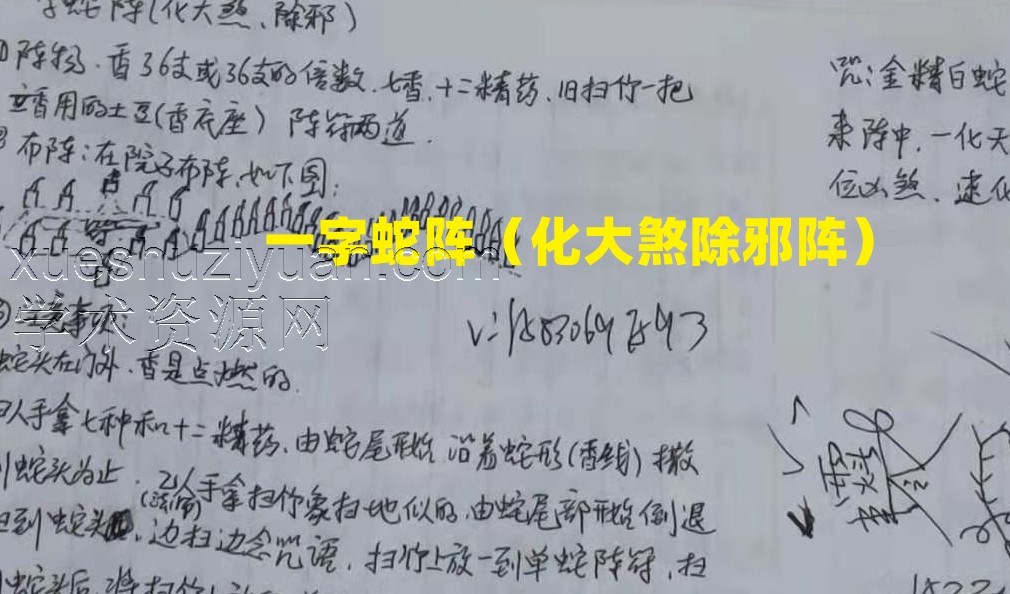 字蛇阵(化大煞、除邪)
阵物、香36支或36支的倍数、七香、十二精药、旧扫竹一把
立香用的土豆(香底座) 阵符两道.
布阵:在院子布阵、如下图:
一字蛇阵（化大煞除邪阵）
xueshuziyuan.com
学术资源网
③注意事项:
蛇头在门外、香是点燃的.
人手拿七种和十二精药、由蛇尾开始 沿着蛇形(香线)撒
到蛇头为止. 2人手拿扫竹象扫地似的、由蛇尾部开始倒退
(法师)
扫到蛇头、边扫边念咒语、扫竹上放一到单蛇阵符、扫
到蛇头后、将扫竹
咒:金精白蛇
来阵中、一化天
位凶煞、速化